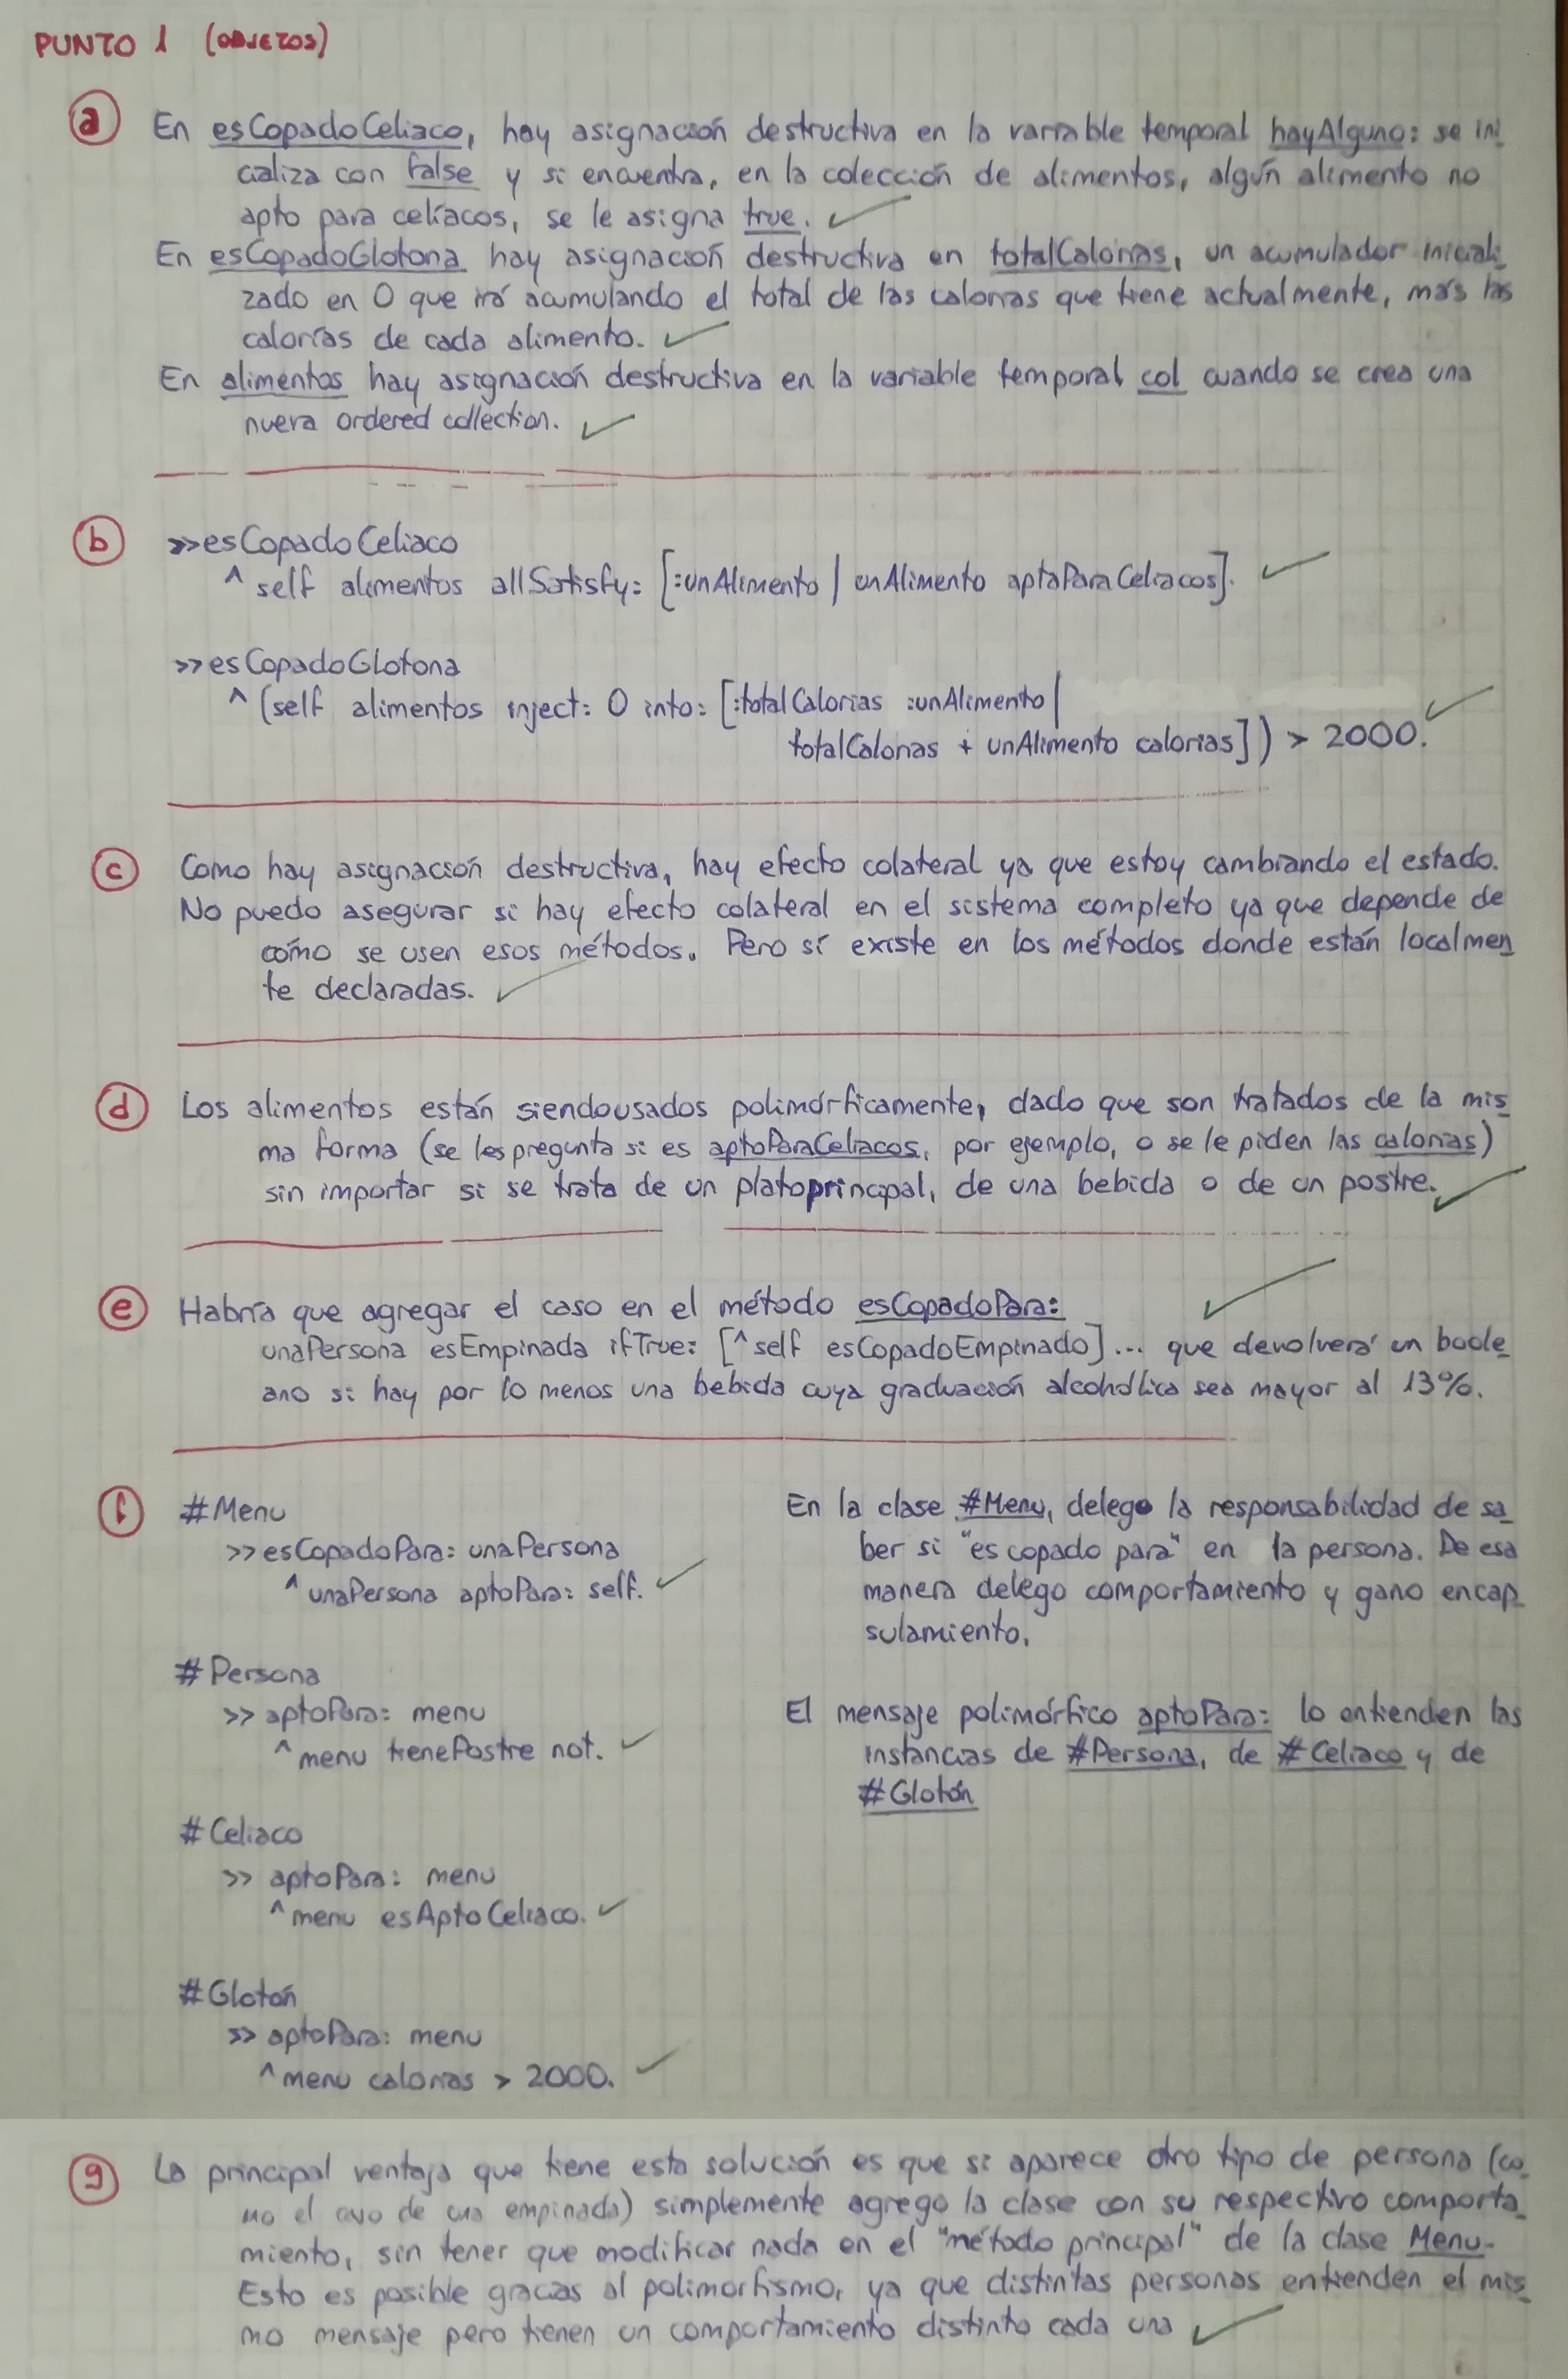 PUNTO 1 (OBJETOS)
a En esCopadoCeliaco, hay asignación destructiva en la variable temporal hayAlguno: se ini_
cializa con false y si encuentra, en la colección de alimentos, algún alimento no
apto para celíacos, se le asigna true.
En esCopadoGlotona hay asignación destructiva en totalCalorias, un acumulador iniciali_
zado en 0 que irá acumulando el total de las calorías que tiene actualmente, más las
calorías de cada alimento.
En alimentos hay asignación destructiva en la variable temporal col cuando se crea una
nueva ordered collection.
b >>esCopadoCeliaco
^ self alimentos allSatisfy: [:unAlimento | unAlimento aptoParaCeliacos].
>>esCopadoGlotona
^ (self alimentos inject: 0 into: [:totalCalorias :unAlimento |
totalCalorias + unAlimento calorias]) > 2000.
c Como hay asignación destructiva, hay efecto colateral ya que estoy cambiando el estado.
No puedo asegurar si hay efecto colateral en el sistema completo ya que depende de
cómo se usen esos métodos. Pero sí existe en los métodos donde están localmen_
te declaradas.
d Los alimentos están siendo usados polimórficamente, dado que son tratados de la mis_
ma forma (se les pregunta si es aptoParaCeliacos, por ejemplo, o se le piden las calorias)
sin importar si se trata de un plato principal, de una bebida o de un postre.
e Habría que agregar el caso en el método esCopadoPara:
unaPersona esEmpinada ifTrue: [^self esCopadoEmpinado]... que devolverá un boole_
ano si hay por lo menos una bebida cuya graduación alcohólica sea mayor al 13%.
f #Menu
>>esCopadoPara: unaPersona
^ unaPersona aptoPara: self.
#Persona
>> aptoPara: menu
^ menu tienePostre not.
#Celiaco
>> aptoPara: menu
^ menu esAptoCeliaco.
#Glotón
>> aptoPara: menu
^ menu calorias > 2000.
En la clase #Menu, delego la responsabilidad de sa_
ber si "es copado para" en la persona. De esa
manera delego comportamiento y gano encap_
sulamiento.
El mensaje polimórfico aptoPara: lo entienden las
instancias de #Persona, de #Celiaco y de
#Glotón
g La principal ventaja que tiene esta solución es que si aparece otro tipo de persona (co_
mo el caso de una empinada) simplemente agrego la clase con su respectivo comporta_
miento, sin tener que modificar nada en el "método principal" de la clase Menu.
Esto es posible gracias al polimorfismo, ya que distintas personas entienden el mis_
mo mensaje pero tienen un comportamiento distinto cada una